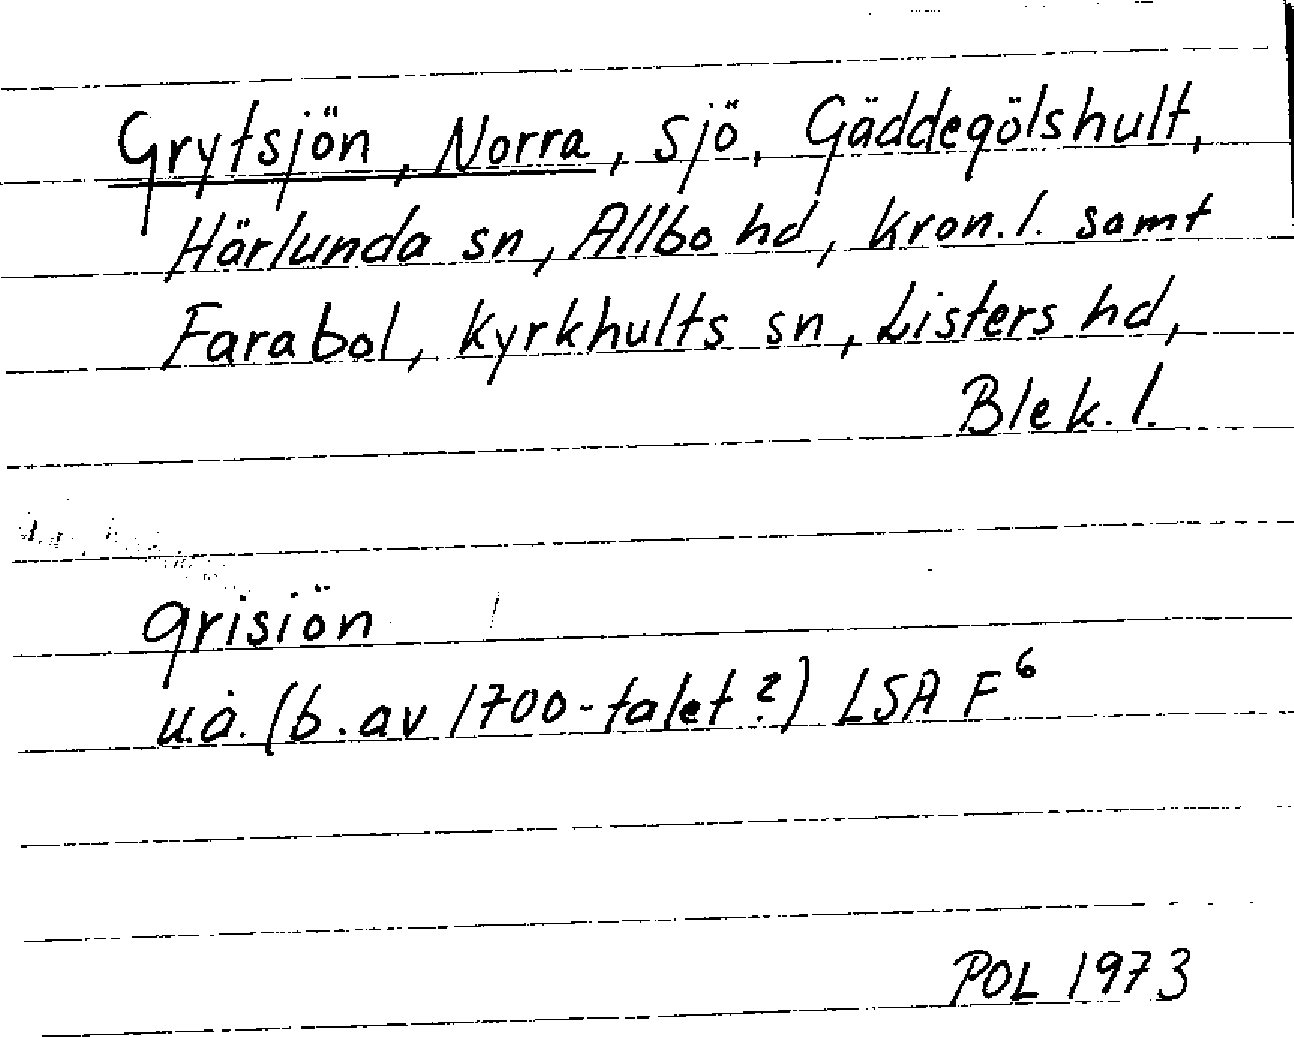 Grytsjön, Norra, sjö, Gäddegölshult,
Härlunda sn, Allbo hd, Kron.l. samt
Farabol, Kyrkhults sn, Listers hd,
Blek.l.
grisiön
u.å. (b. av 1700-talet?) LSA F6
POL 1973